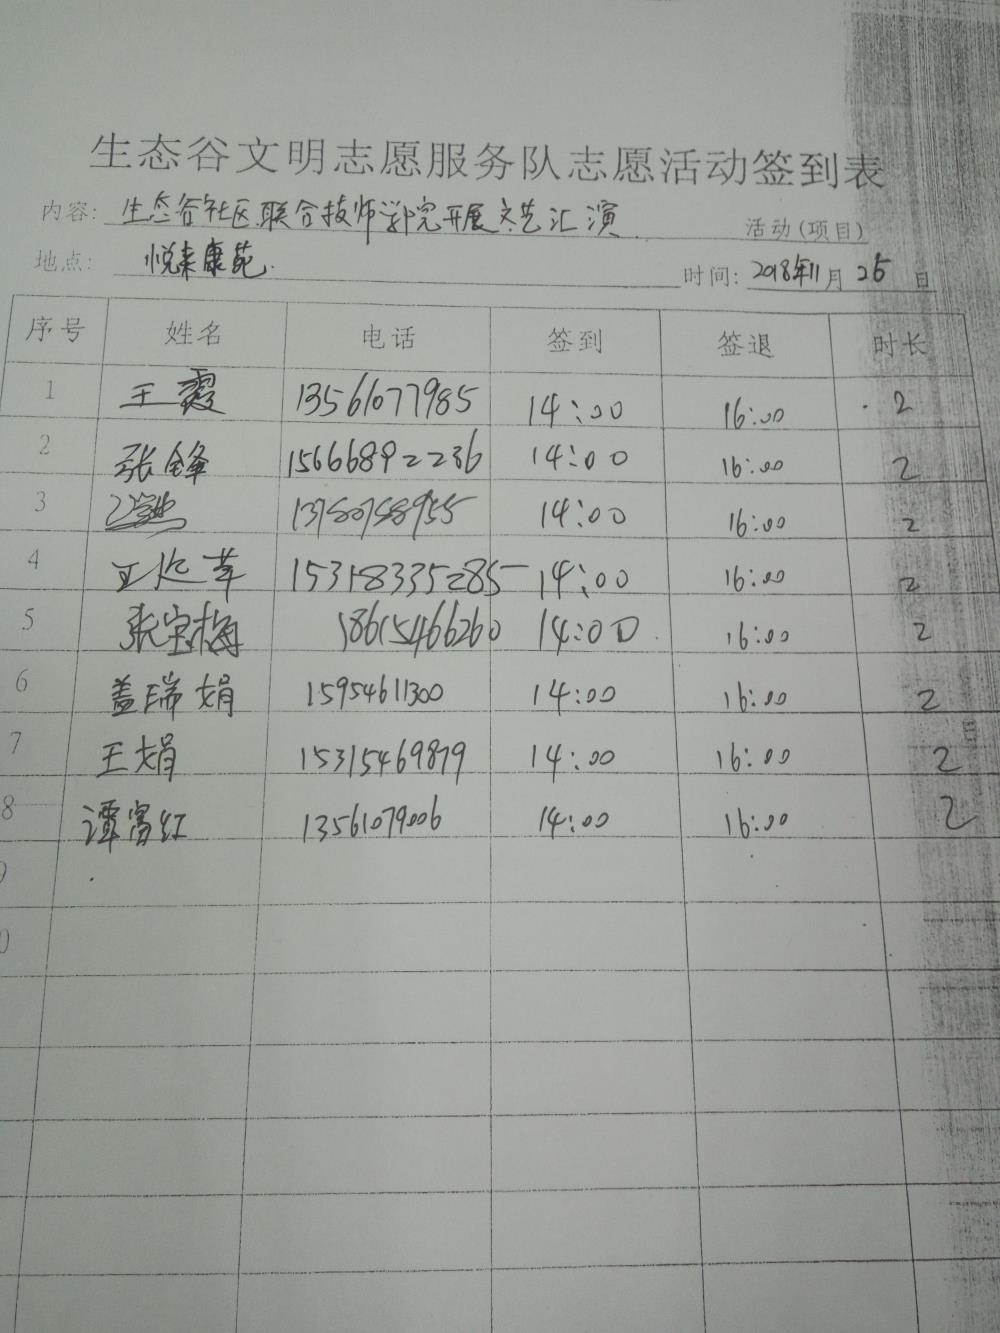 生态谷文明志愿服务队志愿活动签到表
内容: 生态谷社区联合技师学院开展文艺汇演 活动(项目)
地点: 悦来康苑. 时间: 2018年11月25日
序号 姓名 电话 签到 签退 时长
1 王霞 13561077985 14:00 16:00 2
2 张锋 15666892236 14:00 16:00 2
3 14:00 16:00 2
4 15318335285 14:00 16:00 2
5 张宝梅 18615466260 14:00 16:00 2
6 盖瑞娟 15954611300 14:00 16:00 2
7 王娟 15315469879 14:00 16:00 2
8 谭富红 13561079006 14:00 16:00 2